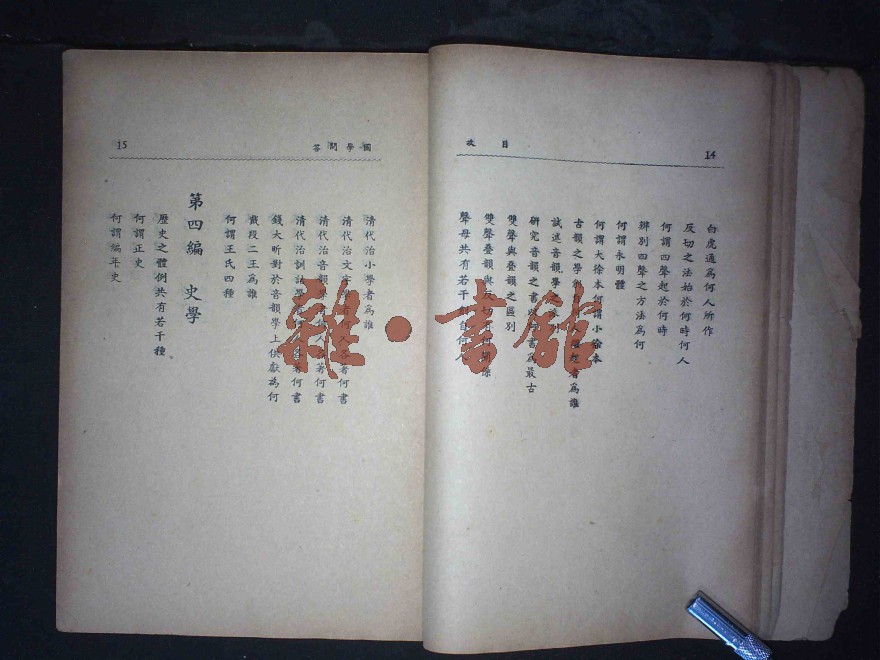 14
目 次
白虎通為何人所作
反切之法始於何時何人
何謂四聲起於何時
辨別四聲之方法為何
何謂永明體
何謂大徐本何謂小徐本
古韻之學 者為誰
試述音韻學之
研究音韻之書 書為最古
雙聲與疊韻之區別
雙聲疊韻與反切
聲母共有若干 何人
國學問答
15
清代治小學者為誰
清代治文字學者何人各著何書
清代治音韻學 人 著何書
清代治訓詁學 著何書
錢大昕對於音韻學上供獻為何
戴段二王為誰
何謂王氏四種
第四編 史學
歷史之體例共有若干種
何謂正史
何謂編年史
雜·書館